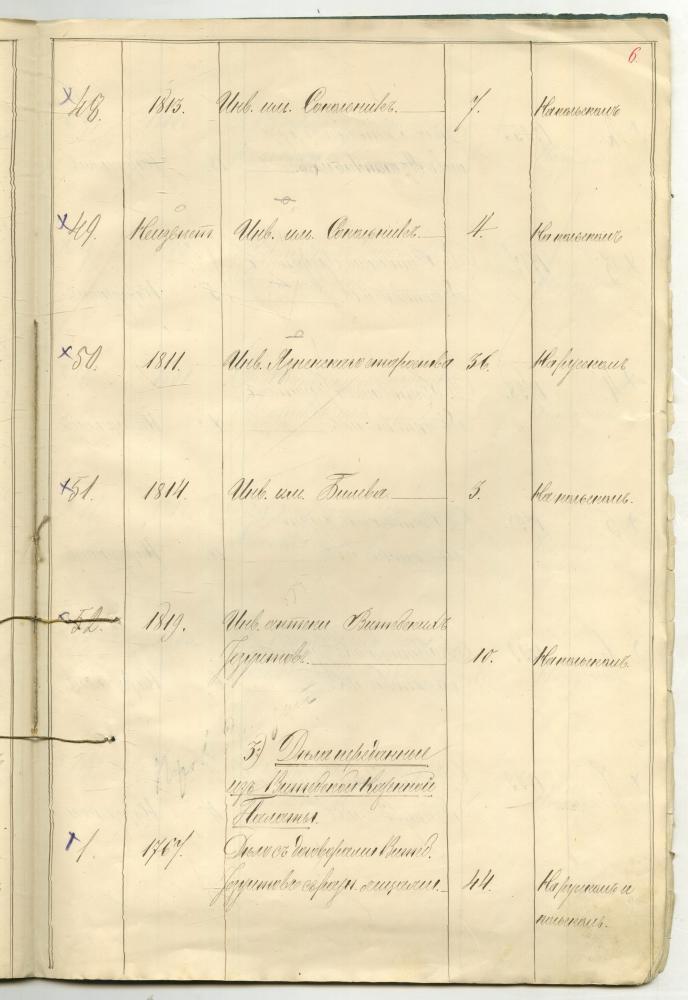 6.
48. 1813. Инв. им. Сокольникъ. 7. На польскомъ
49. Неизвѣст Инв. им. Сокольникъ. 4. На польскомъ
50. 1811. Инв. Язненскаго староства 36. На русскомъ
51. 1814. Инв. им. Билева 5. На польскомъ.
52. 1819. Инв. аптеки Витебскихъ
Іезуитовъ. 10. На польскомъ.
3) Дѣла переданные
изъ Витебской Казенной
Палаты.
1. 1767. Дѣло съ договорами Витеб.
Іезуитовъ съ разн. лицами. 44. На русскомъ и
польскомъ.